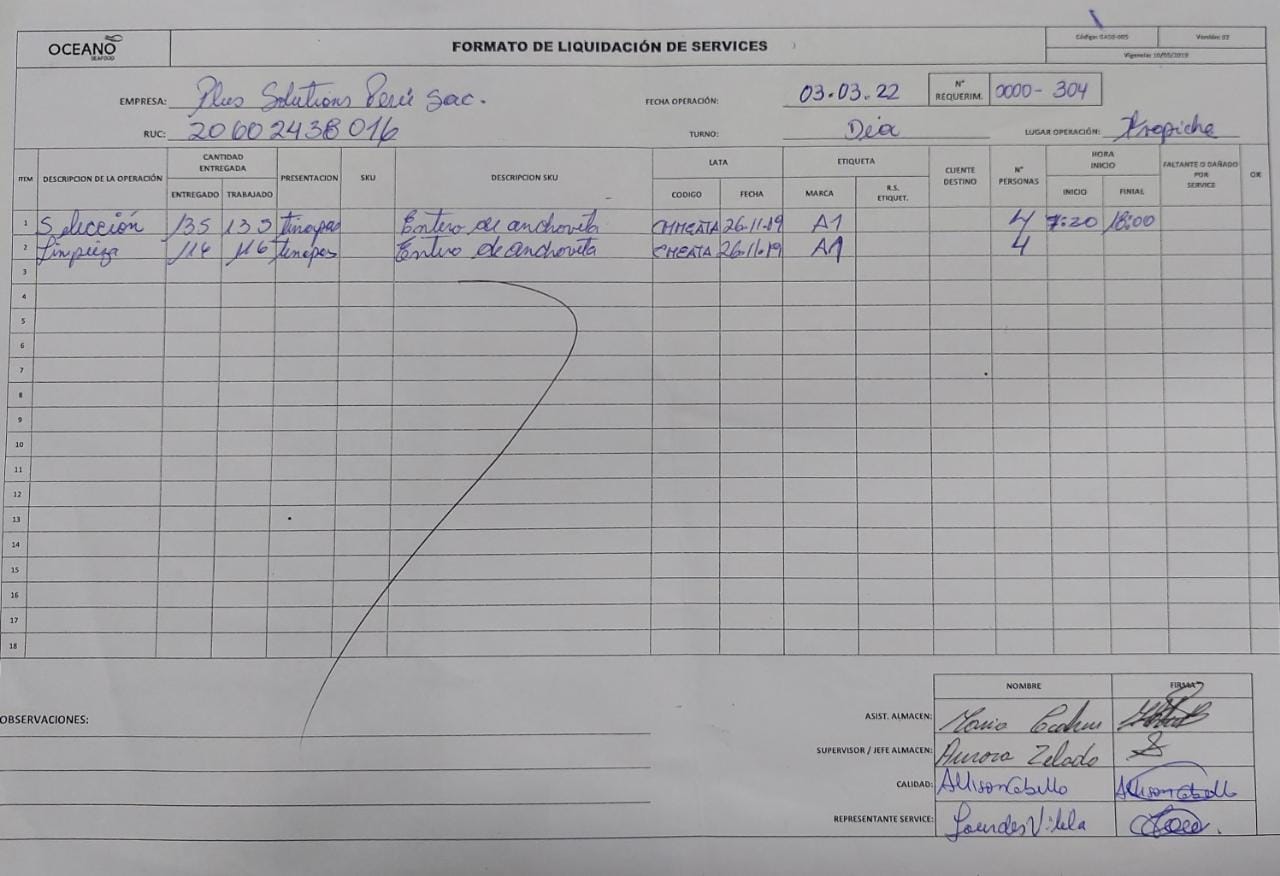 OCEANO
SEAFOOD
FORMATO DE LIQUIDACIÓN DE SERVICES
Versión: 02
Vigencia: 10/05/2019
EMPRESA: Plus Solutions Perú sac.
FECHA OPERACIÓN: 03.03.22
N° REQUERIM. 0000- 304
RUC: 20602438016
TURNO: Dia
LUGAR OPERACIÓN: Trapiche
ITEM DESCRIPCION DE LA OPERACIÓN CANTIDAD ENTREGADA PRESENTACION SKU DESCRIPCION SKU LATA ETIQUETA CLIENTE DESTINO N° PERSONAS HORA INICIO FALTANTE O DAÑADO POR SERVICE OK
ENTREGADO TRABAJADO CODIGO FECHA MARCA R.S. ETIQUET. INICIO FINIAL
1 Selección 135 135 tinapas Entero de anchoveta 26-11-19 A1 4 7:20 18:00
2 Limpieza 116 116 tinapas Entero de anchoveta 26-11-19 A1 4
3
4
5
6
7
8
9
10
11
12
13
14
15
16
17
18
NOMBRE FIRMA
OBSERVACIONES:
ASIST. ALMACEN: Mario
SUPERVISOR / JEFE ALMACEN: Aurora Zelado
CALIDAD: Allison Cabello Allison Cabello
REPRESENTANTE SERVICE: Lourdes Vilela